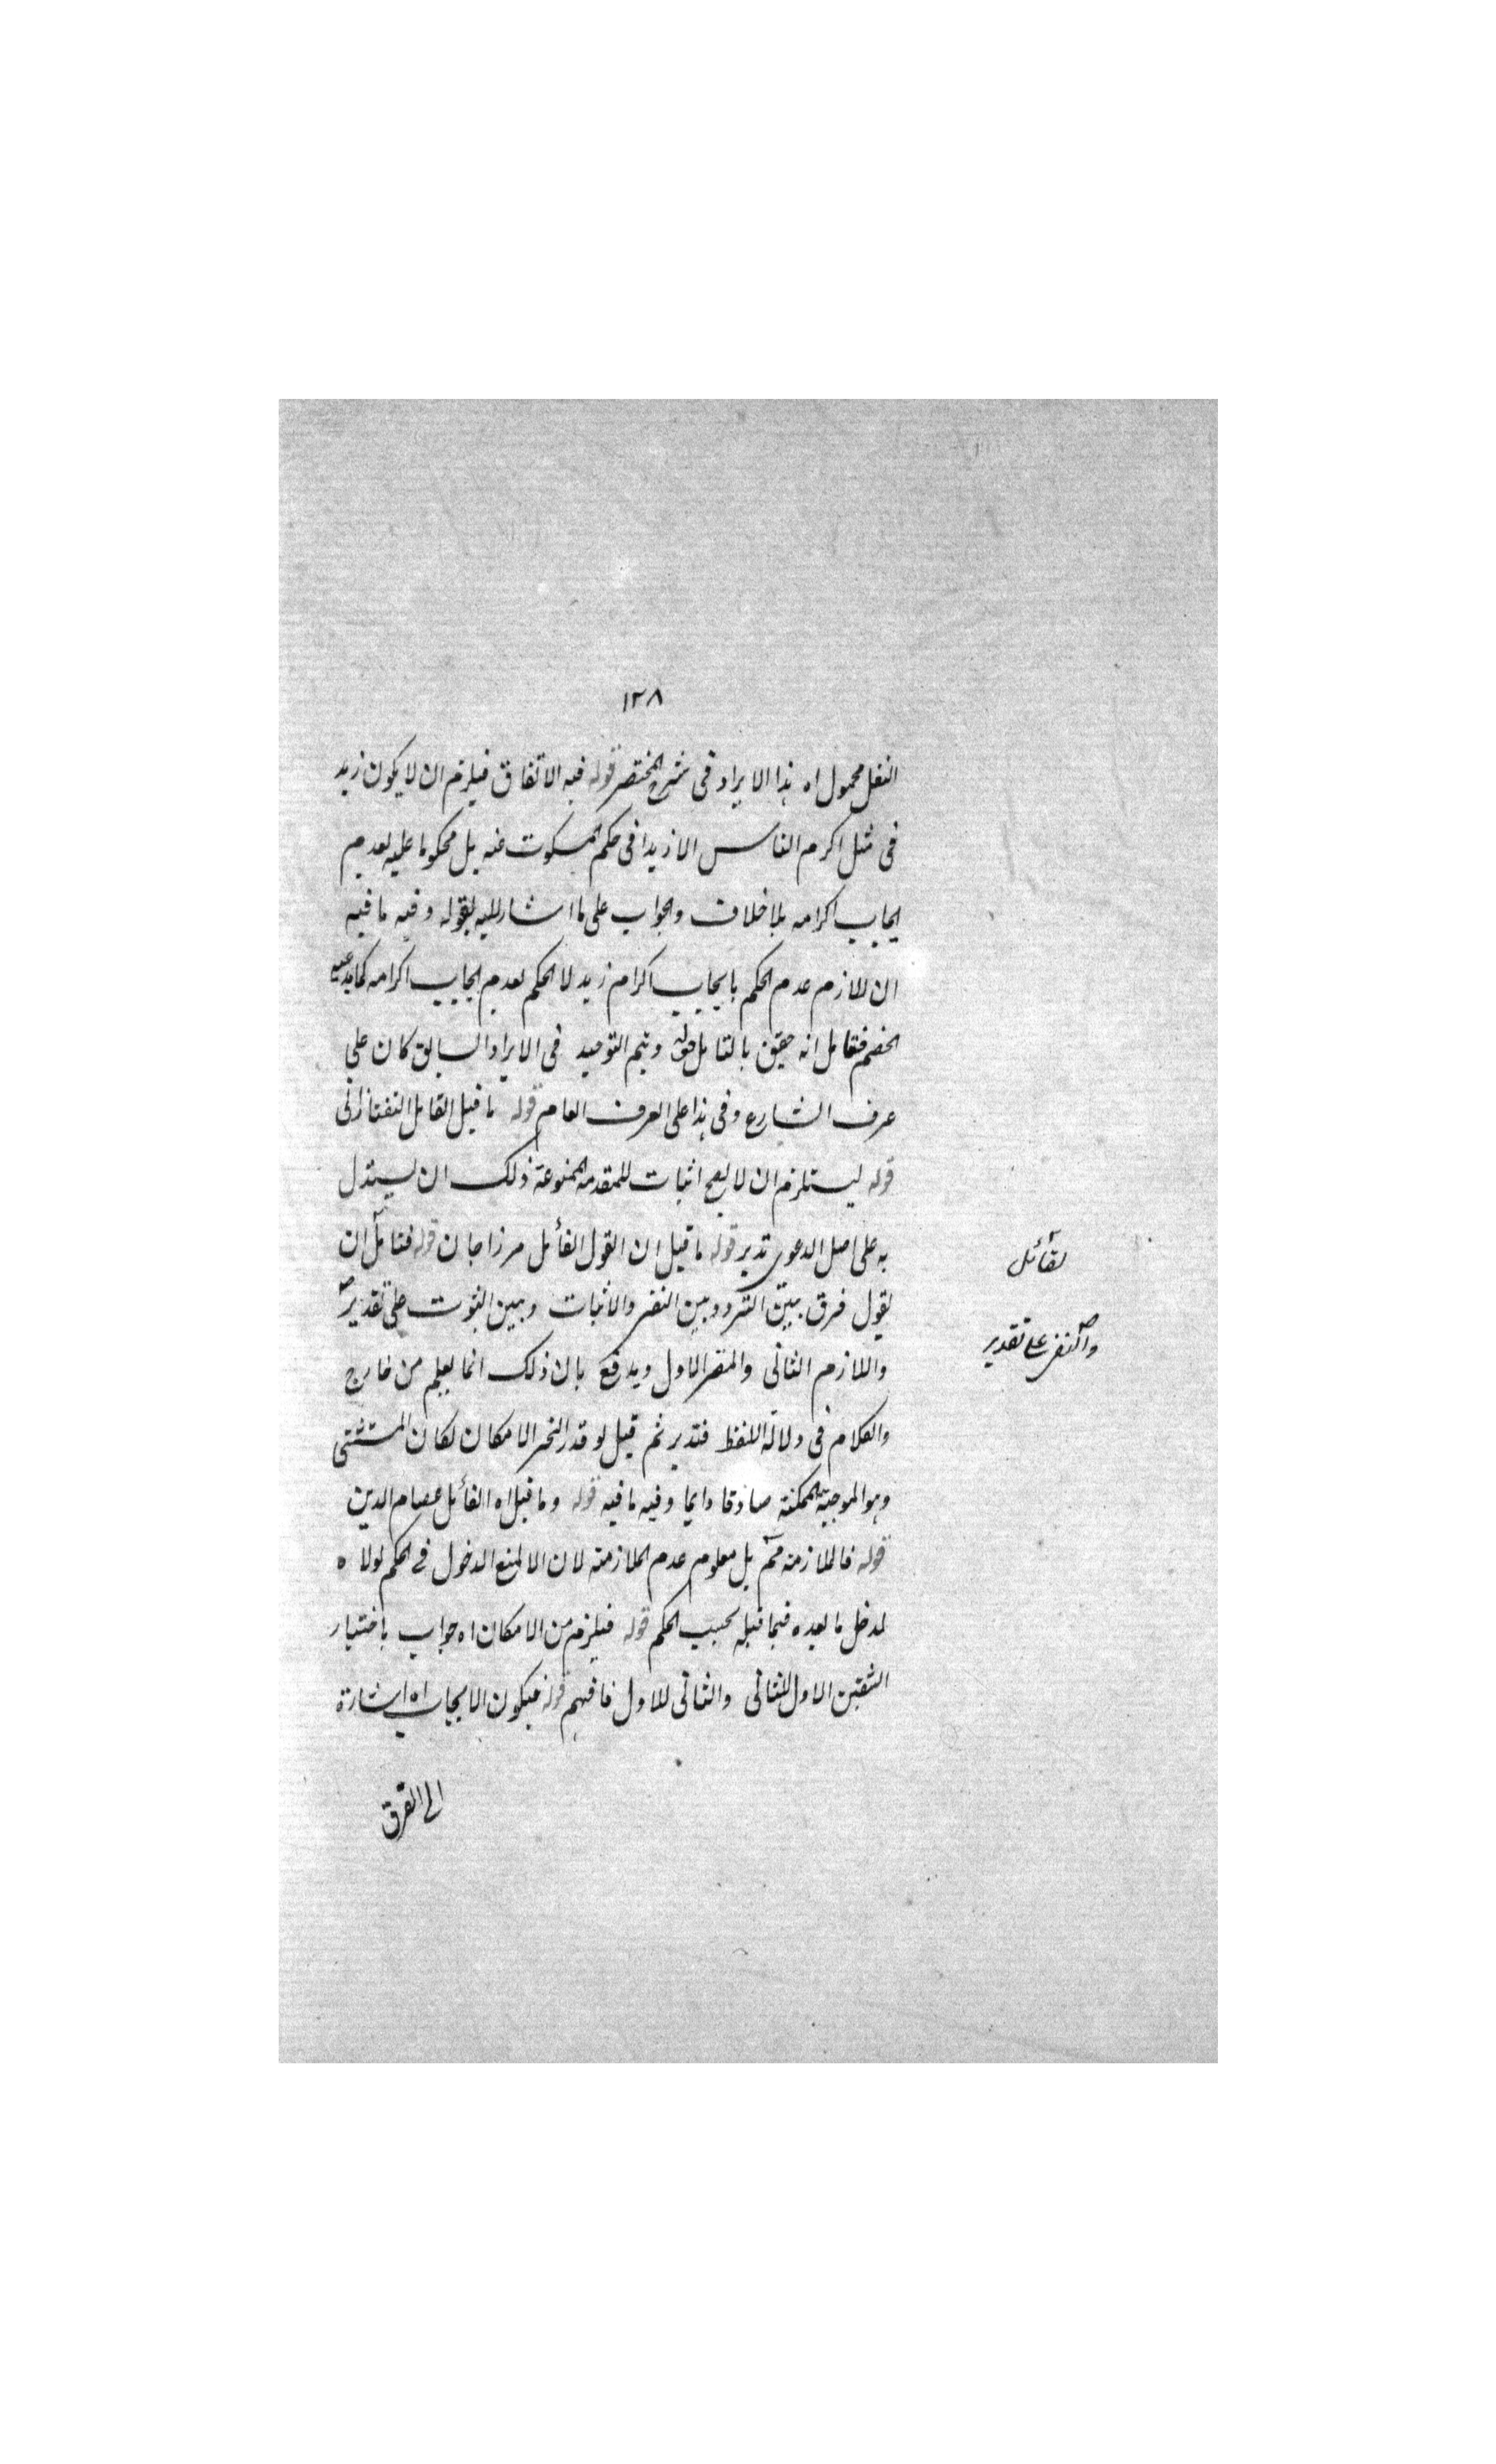 ١٢٨
النقل محمول اه هذا الايراد فى شرح المختصر قوله فيه الاتفاق فيلزم ان لا يكون زيد
فى مثل اكرم الناس الا زيدا فى حكم المسكوت عنه بل محكوما عليه بعدم
ايجاب اكرامه بلا خلاف والجواب على ما اشار اليه بقوله وفيه ما فيه
ان اللازم عدم الحكم بايجاب اكرام زيد لا الحكم بعدم ايجاب اكرامه كما يدعيه
الخصم فتامل انه حقيق بالتامل قوله ويتم التوحيد فى الايراد السابق كان على
عرف الشارع وفى هذا على العرف العام قوله ما قيل القائل التفتازانى
قوله ليستلزم ان لا يصح اثبات للمقدمة الممنوعة ذلك ان يستدل
به على اصل الدعوى تدبر قوله ما قيل ان القول القائل مرزا جان قوله فتامل ان
لقائل
يقول فرق بين التردد بين النفى والاثبات وبين الثبوت على تقدير
والنفى على تقدير
واللازم الثانى والمقر الاول ويدفع بان ذلك انما يعلم من خارج
والكلام فى دلالة اللفظ فتدبر ثم قيل لو قدر الخبر الامكان لكان المستثنى
وهو الموجبة الممكنة صادقا دايما وفيه ما فيه قوله وما قيل اه القائل عصام الدين
قوله فالملازمة مم بل معلوم عدم الملازمة لان الا لمنع الدخول فى الحكم لولاه
لدخل ما بعده فيما قبله بحسب الحكم قوله فيلزم من الامكان اه جواب باختيار
الشقين الاول للثانى والثانى للاول فافهم قوله فيكون الايجاب اه اشارة
الى الفرق